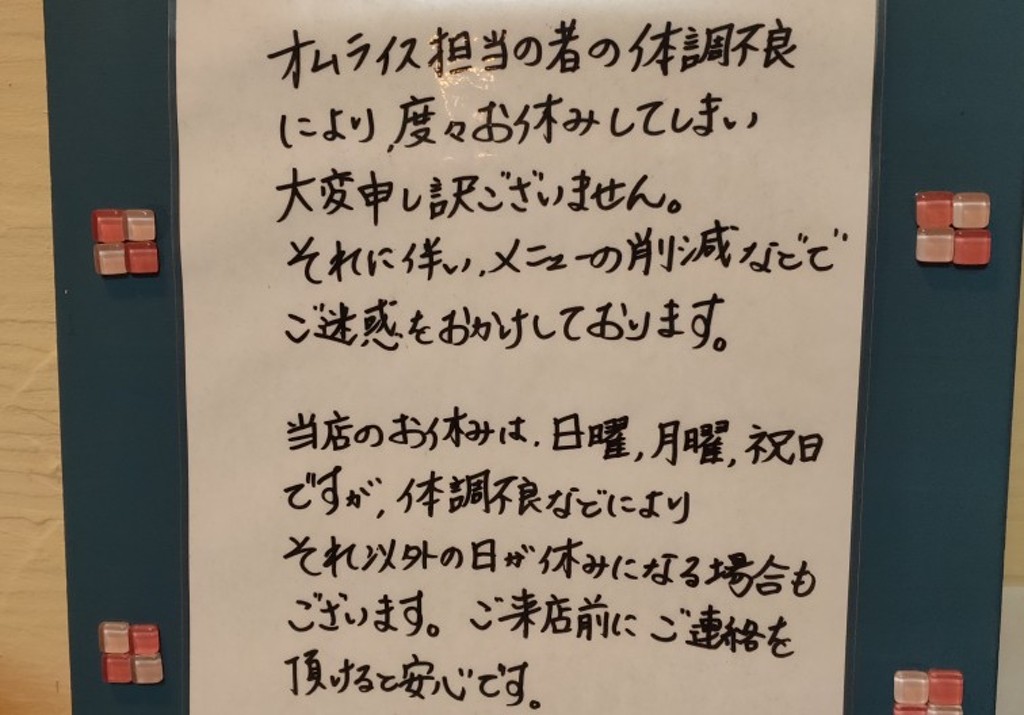 オムライス担当の者の体調不良
により、度々お休みしてしまい
大変申し訳ございません。
それに伴い、メニューの削減などで
ご迷惑をおかけしております。
当店のお休みは、日曜、月曜、祝日
ですが、体調不良などにより
それ以外の日が休みになる場合も
ございます。ご来店前にご連絡を
頂けると安心です。